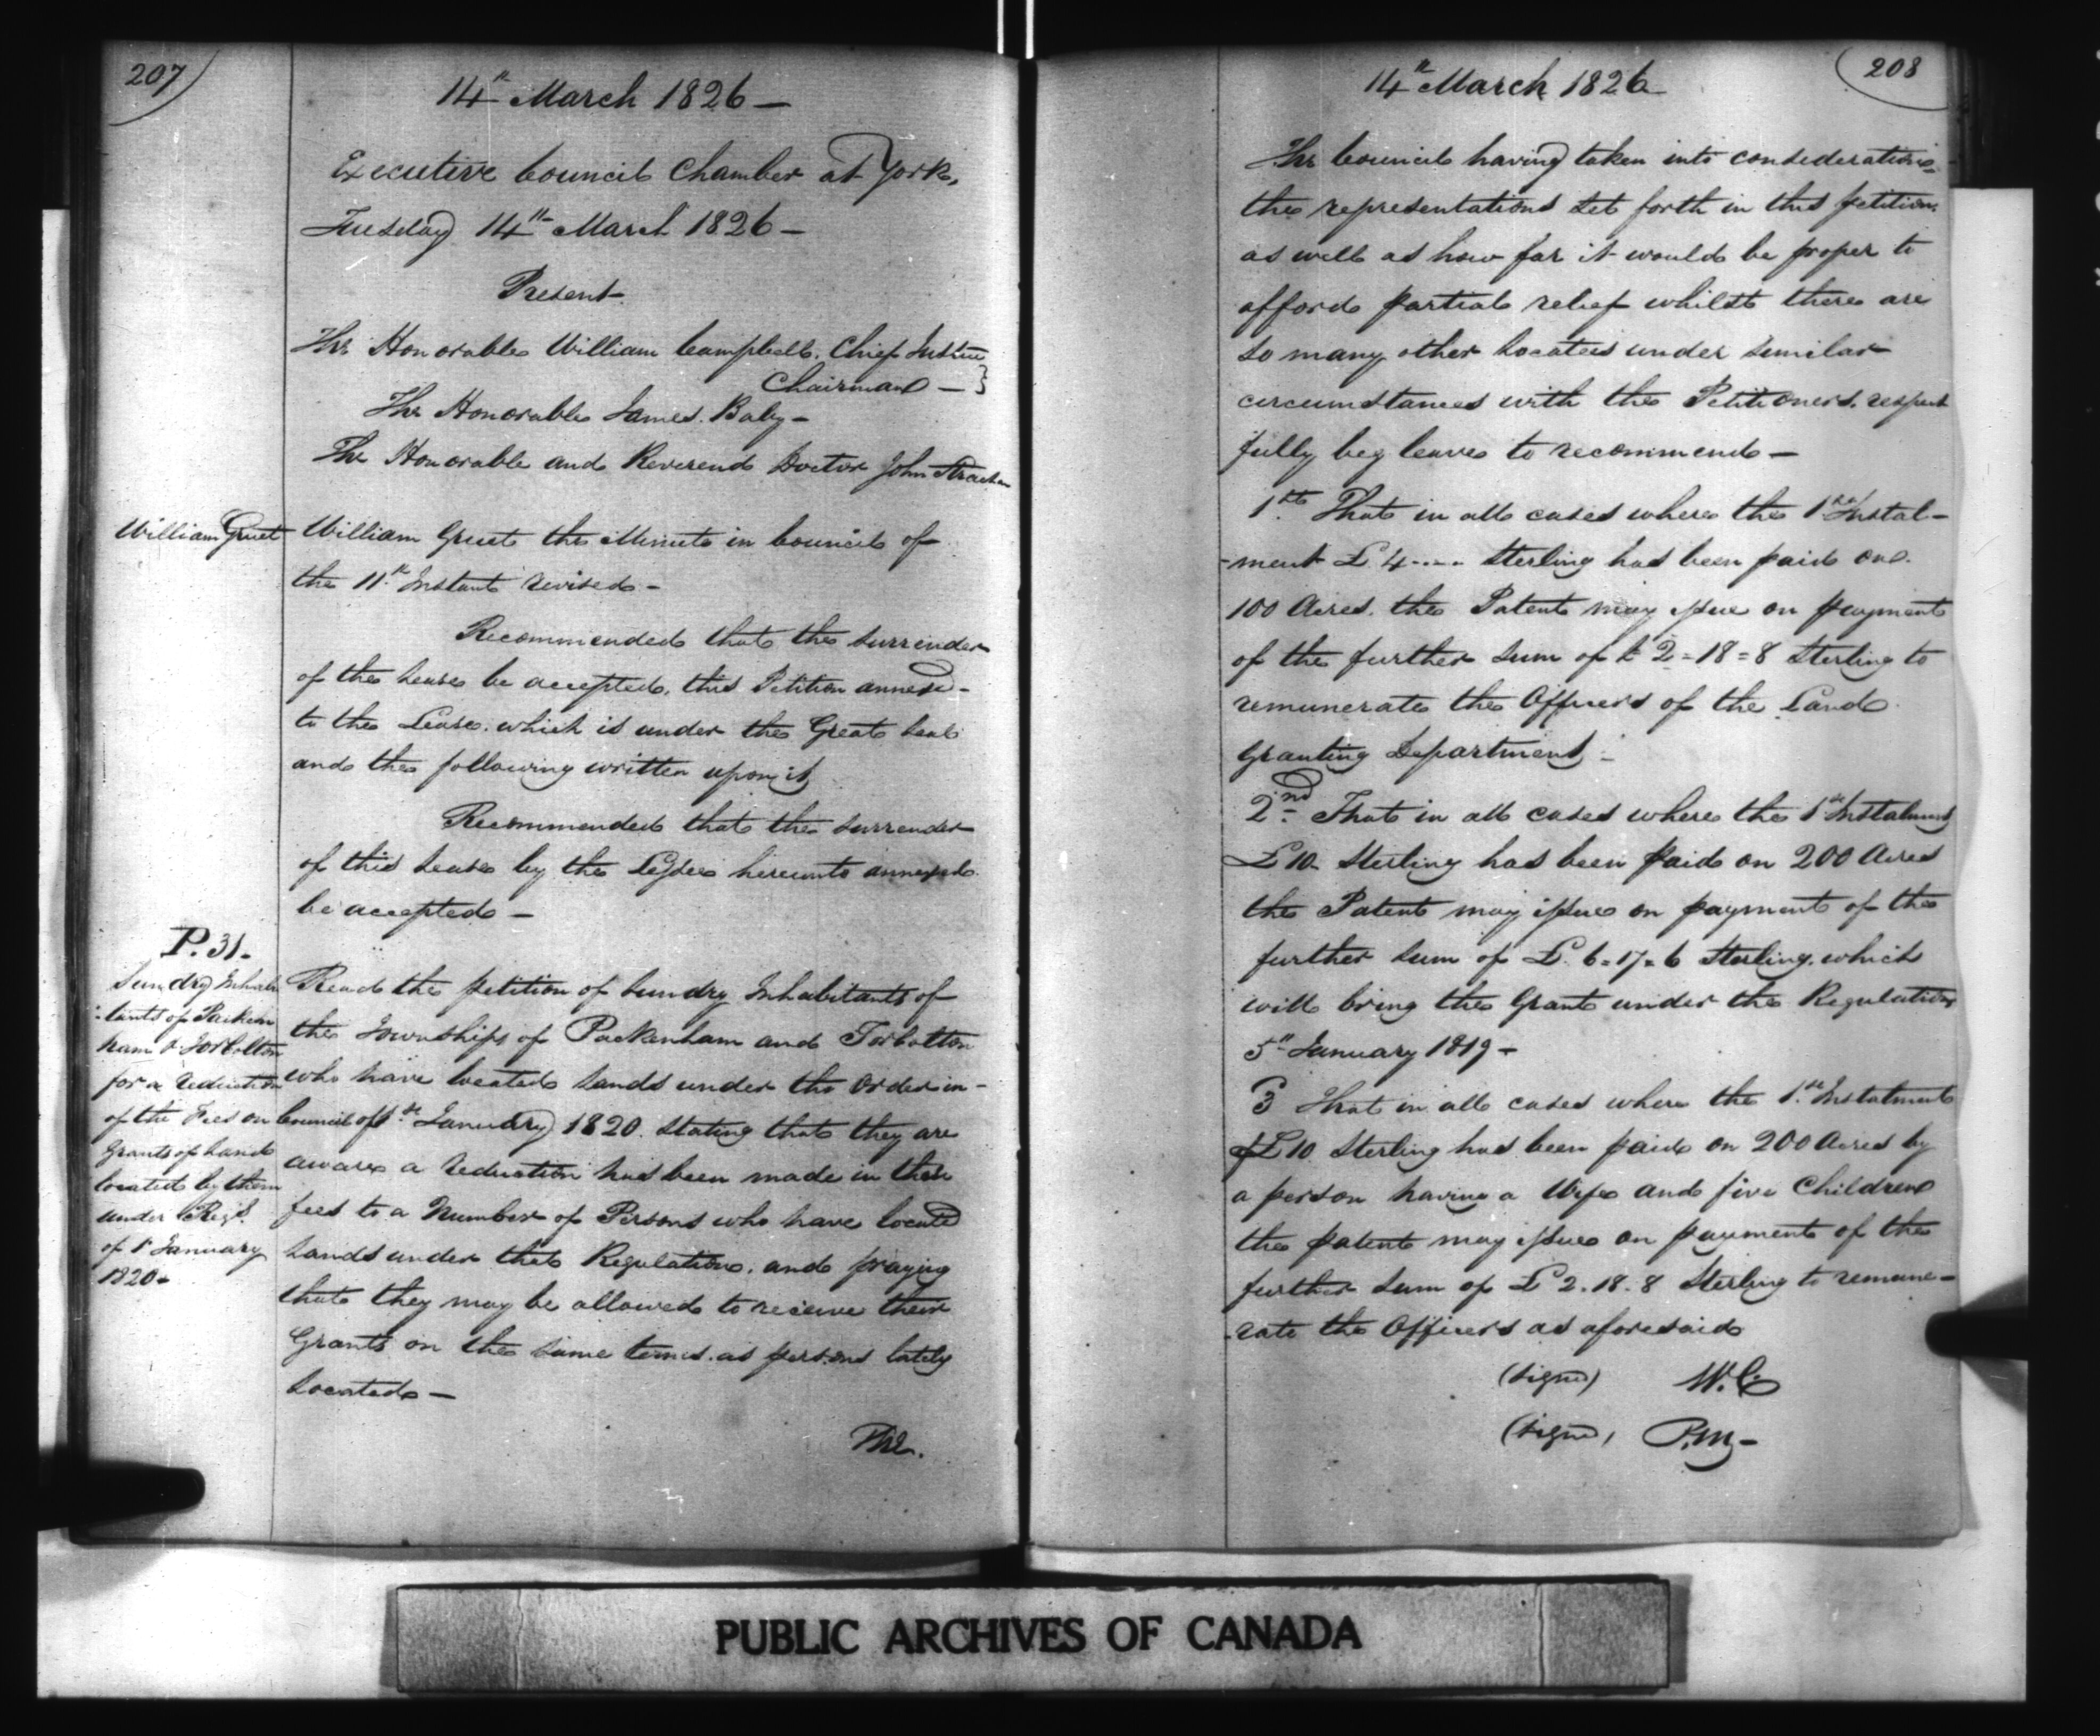 207
14th March 1826 —
Executive Council Chamber at York,
Tuesday 14th March 1826 —
Present
The Honorable William Campbell. Chief Justice
Chairman — }
The Honorable James Baby —
The Honorable and Reverend Doctor John Strachan
William Gruet
William Gruet the Minute in Council of
the 11th Instant revised —
Recommended that the surrender
of the Lease be accepted, this Petition annexed
to the Lease which is under the Great Seal
and the following written upon it
Recommended that the surrender
of this Lease by the Lessee hereunto annexed
be accepted —
P. 31.
Sundry Inhabi
-tants of Packen
ham & Torbolton
for a reduction
of the Fees on
Grants of Land
located by them
under Regs.
of 1st January
1820 —
Read the petition of Sundry Inhabitants of
the Townships of Packenham and Torbolton
who have located Lands under the Order in -
Council of 1st January 1820. stating that they are
aware a reduction has been made in their
fees to a Number of Persons who have located
Lands under that Regulation. and praying
that they may be allowed to receive their
Grants on the same terms as persons lately
Located —
The.
208
14th March 1826
The Council having taken into consideration
the representations set forth in this petition
as well as how far it would be proper to
afford partial relief whilst there are
so many other Locatees under similar
circumstances with the Petitioners. respect
fully beg leave to recommend —
1st That in all cases where the 1st Instal-
-ment £ 4 .... Sterling has been paid on
100 Acres. the Patent may issue on payment
of the further sum of £ 2 = 18 = 8 Sterling to
remunerate the Officers of the Land
Granting Department —
2nd. That in all cases where the 1st Instalment
£ 10 Sterling has been paid on 200 Acres
the Patent may issue on payment of the
further sum of £. 6 = 17 = 6 Sterling. which
will bring the Grant under the Regulation
5th January 1819 —
3 That in all cases where the 1st Instalment
of £10 Sterling has been paid on 200 Acres by
a person having a Wife and five Children
the patent may issue on payment of the
further sum of £ 2. 18. 8 Sterling to remune-
-rate the Officers as aforesaid
(signed) W. C.
(signed) P. M —
PUBLIC ARCHIVES OF CANADA